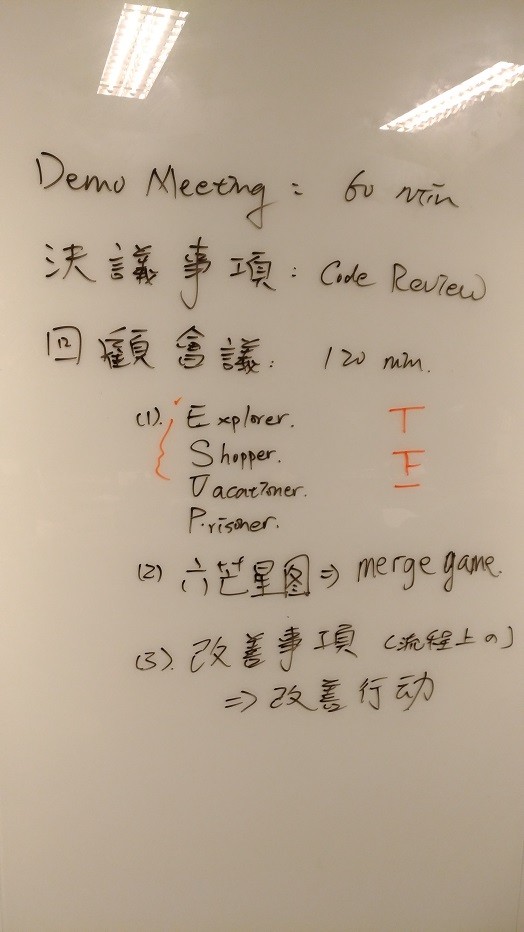 Demo Meeting: 60 min
決議事項: Code Review
回顧會議: 120 min.
(1). Explorer. T
Shopper. 下
Vacationer.
Prisoner.
(2) 六芒星图 => merge game.
(3). 改善事項 (流程上の)
=> 改善行动